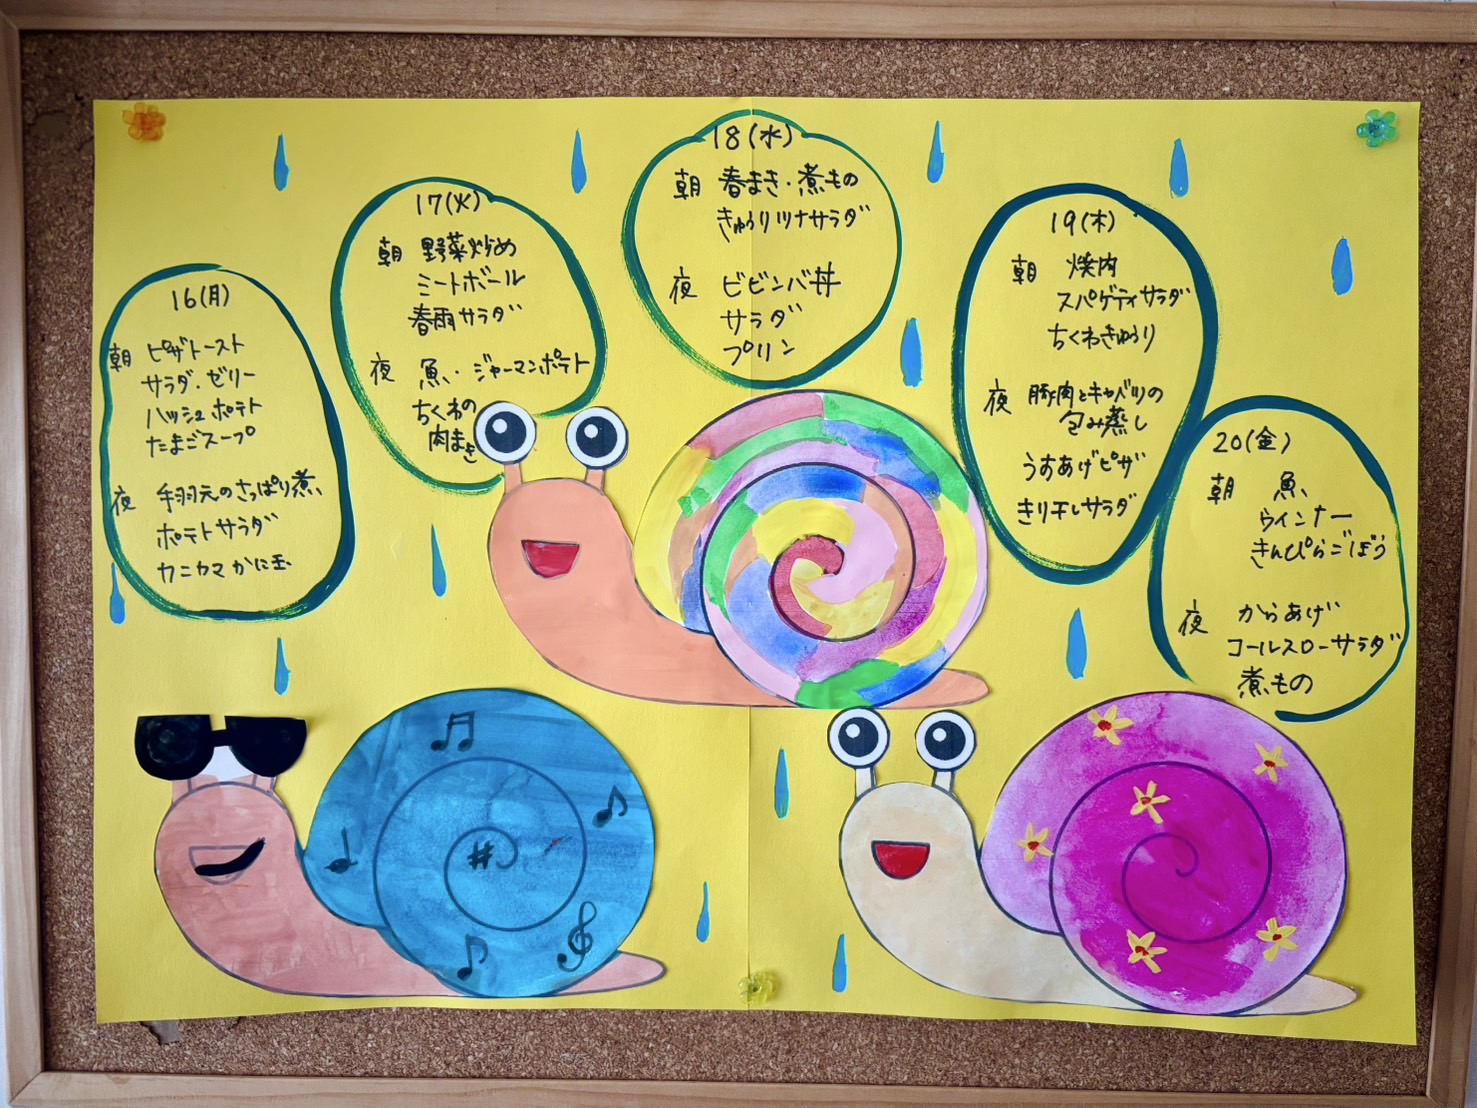 16(月)
朝 ピザトースト
サラダ・ゼリー
ハッシュポテト
たまごスープ
夜 手羽元のさっぱり煮、
ポテトサラダ
カニカマかに玉
17(火)
朝 野菜炒め
ミートボール
春雨サラダ
夜 魚、・ジャーマンポテト
ちくわの
肉まき
18(水)
朝 春まき・煮もの
きゅうりツナサラダ
夜 ビビンバ丼
サラダ
プリン
19(木)
朝 焼肉
スパゲティサラダ
ちくわきゅうり
夜 豚肉とキャベツの
包み蒸し
うすあげピザ
きり干しサラダ
20(金)
朝 魚、
ウインナー
きんぴらごぼう
夜 からあげ
コールスローサラダ
煮もの